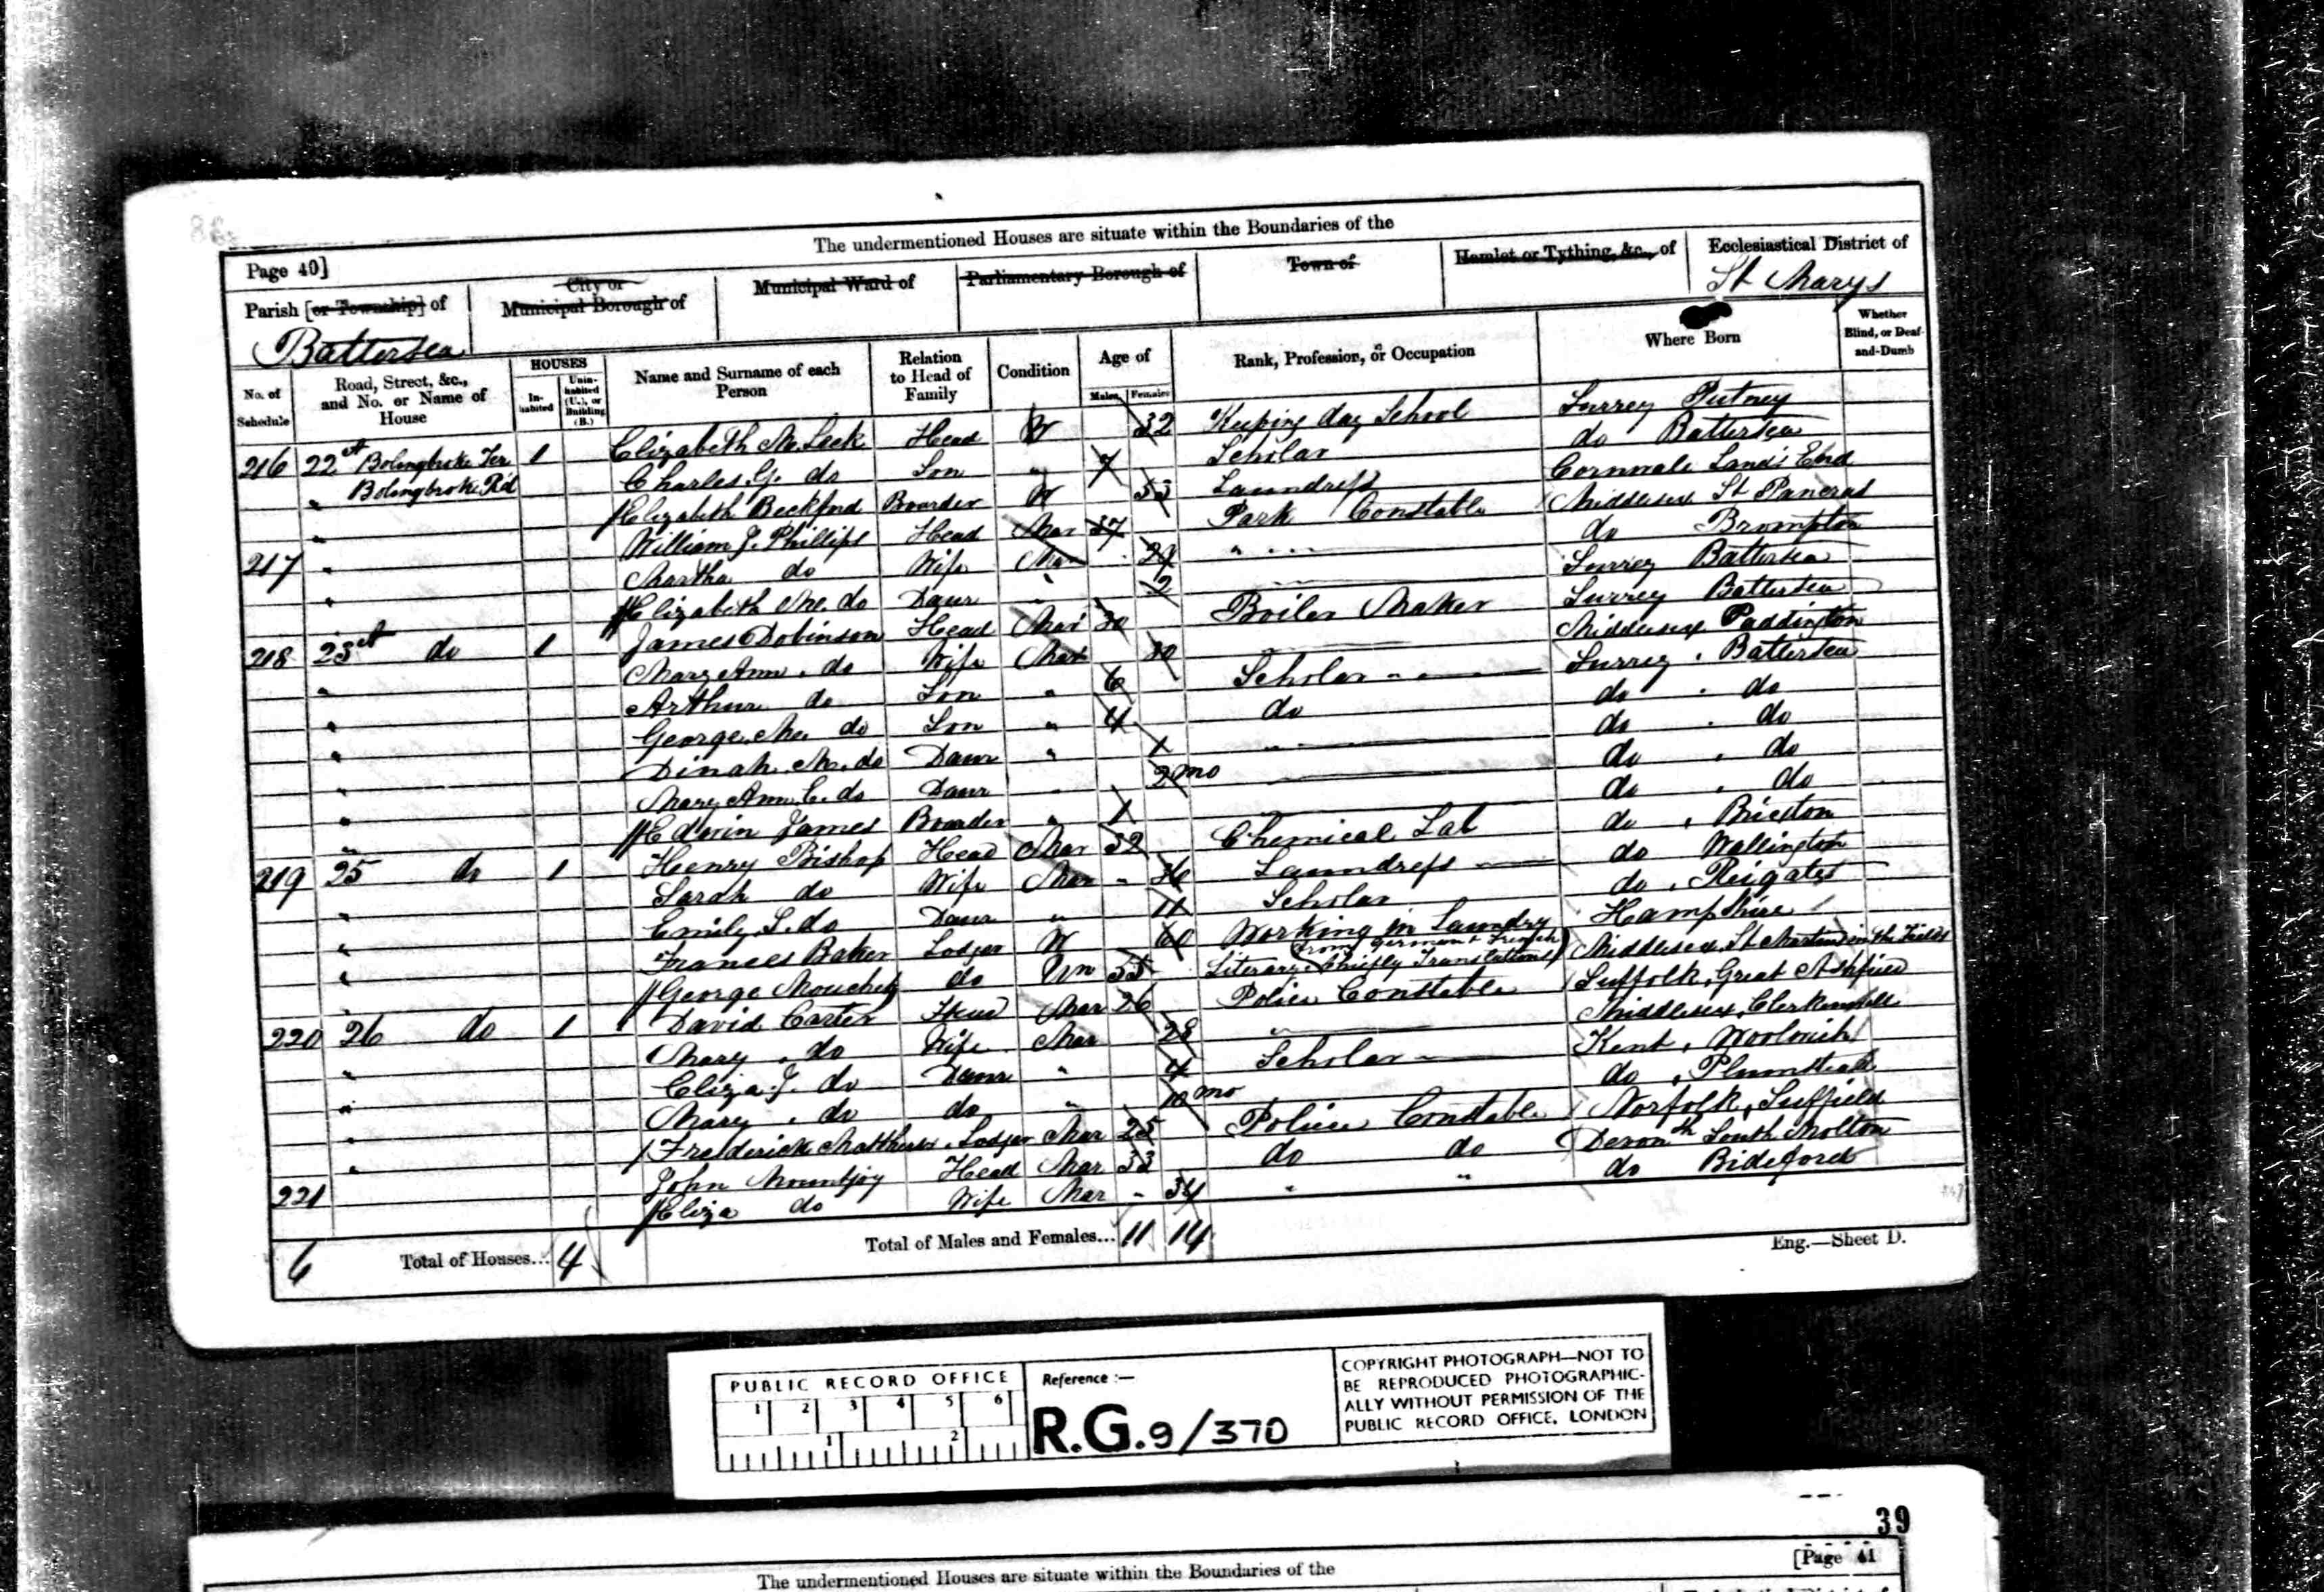 The undermentioned Houses are situate within the Boundaries of the
Page 40]
Parish [or Township] of
Battersea
City or
Municipal Borough of
Municipal Ward of
Parliamentary Borough of
Town of
Hamlet or Tything, &c., of
Ecclesiastical District of
St Marys
No. of Schedule
Road, Street, &c., and No. or Name of House
HOUSES
In-habited
Unin-habited (U.), or Building (B.)
Name and Surname of each Person
Relation to Head of Family
Condition
Age of
Males
Females
Rank, Profession, or Occupation
Where Born
Whether Blind, or Deaf-and-Dumb
216 22 Bolingbroke Ter 1 Elizabeth M. Leek Head W 32 Keeping day School Surrey Putney
" Bolingbroke Rd Charles G. do Son " 7 Scholar do Battersea
" Elizabeth Beckford Boarder W 53 Laundress Cornwall Lands End
217 " William J. Phillips Head Mar 37 Park Constable Middlesex St Pancras
" Martha do Wife Mar 29 do Brompton
" Elizabeth Me. do Daur " 2 Surrey Battersea
218 23 do 1 James Dobinson Head Mar 30 Boiler Maker Surrey Battersea
" Mary Ann do Wife Mar 30 Middlesex Paddington
" Arthur do Son " 6 Scholar Surrey Battersea
" George Me. do Son " 4 do do do
" Dinah M. do Daur " 1 do do
" Mary Ann C. do Daur " 2 mo do do
" Edwin James Boarder " 1 do do
219 25 do 1 Henry Bishop Head Mar 32 Chemical Lab do Brixton
" Sarah do Wife Mar 36 Laundress do Wallington
" Emily S. do Daur " 11 Scholar do Reigate
" Frances Baker Lodger W 60 Working in Laundry Hampshire
" George do Un 55 Literary Chiefly Translations from German & French Middlesex St Martins in the Fields
220 26 do 1 David Carter Head Mar 26 Police Constable Suffolk, Great Ashfield
" Mary do Wife Mar 28 Middlesex, Clerkenwell
" Eliza J. do Daur " 4 Scholar Kent, Woolwich
" Mary do do " 10 mo do, Plumstead
" Frederick Matthews Lodger Mar 25 Police Constable Norfolk, Suffield
221 John Mountjoy Head Mar 33 do do Devon South Molton
Eliza do Wife Mar 34 " " do Bideford
6 Total of Houses... 4
Total of Males and Females... 11 14
Eng.—Sheet D.
PUBLIC RECORD OFFICE
1 2 3 4 5 6
1 2
Reference :—
R.G. 9/370
COPYRIGHT PHOTOGRAPH—NOT TO
BE REPRODUCED PHOTOGRAPHIC-
ALLY WITHOUT PERMISSION OF THE
PUBLIC RECORD OFFICE, LONDON
39
[Page 41
The undermentioned Houses are situate within the Boundaries of the